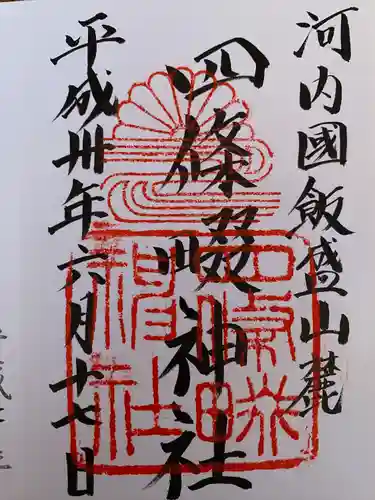 河内國飯盛山麓
四條畷神社
平成卅年六月十七日